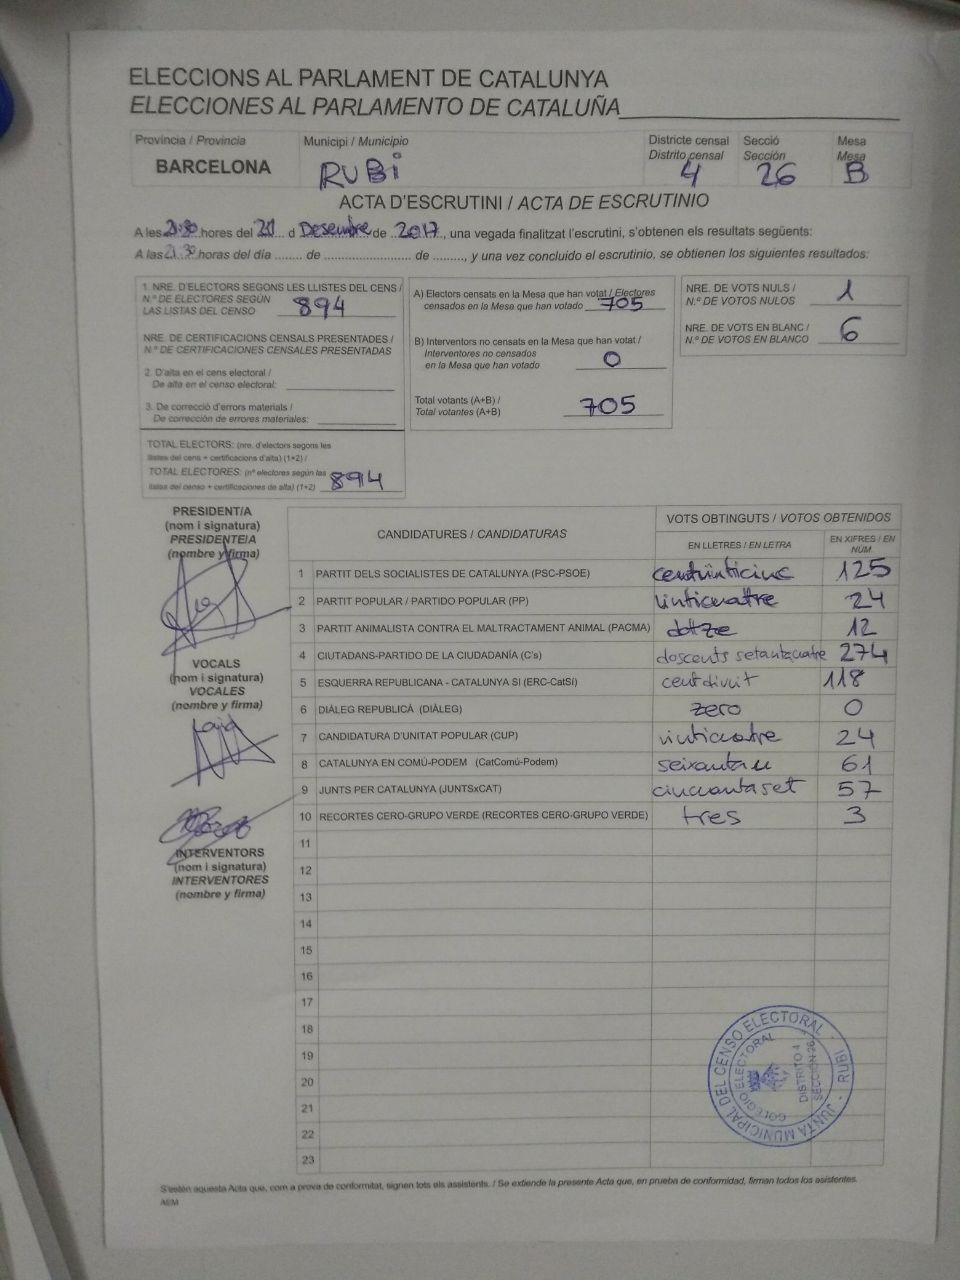 ELECCIONS AL PARLAMENT DE CATALUNYA
ELECCIONES AL PARLAMENTO DE CATALUÑA
Província / Provincia
BARCELONA
Municipi / Municipio
RUBÍ
Districte censal
Distrito censal
4
Secció
Sección
26
Mesa
Mesa
B
ACTA D'ESCRUTINI / ACTA DE ESCRUTINIO
A les 21:30 hores del 21 d Desembre de 2017, una vegada finalitzat l'escrutini, s'obtenen els resultats següents:
A las 21:30 horas del día ........ de ........................ de ........., y una vez concluido el escrutinio, se obtienen los siguientes resultados:
1. NRE. D'ELECTORS SEGONS LES LLISTES DEL CENS /
N.º DE ELECTORES SEGÚN
LAS LISTAS DEL CENSO 894
NRE. DE CERTIFICACIONS CENSALS PRESENTADES /
N.º DE CERTIFICACIONES CENSALES PRESENTADAS
2. D'alta en el cens electoral /
De alta en el censo electoral:
3. De correcció d'errors materials /
De corrección de errores materiales:
TOTAL ELECTORS: (nre. d'electors segons les
llistes del cens + certificacions d'alta) (1+2) /
TOTAL ELECTORES: (nº electores según las
listas del censo + certificaciones de alta) (1+2) 894
A) Electors censats en la Mesa que han votat / Electores
censados en la Mesa que han votado 705
B) Interventors no censats en la Mesa que han votat /
Interventores no censados
en la Mesa que han votado 0
Total votants (A+B) /
Total votantes (A+B) 705
NRE. DE VOTS NULS /
N.º DE VOTOS NULOS 1
NRE. DE VOTS EN BLANC /
N.º DE VOTOS EN BLANCO 6
PRESIDENT/A
(nom i signatura)
PRESIDENTE/A
(nombre y firma)
VOCALS
(nom i signatura)
VOCALES
(nombre y firma)
INTERVENTORS
(nom i signatura)
INTERVENTORES
(nombre y firma)
CANDIDATURES / CANDIDATURAS
VOTS OBTINGUTS / VOTOS OBTENIDOS
EN LLETRES / EN LETRA
EN XIFRES / EN NÚM.
1 PARTIT DELS SOCIALISTES DE CATALUNYA (PSC-PSOE) centvinticinc 125
2 PARTIT POPULAR / PARTIDO POPULAR (PP) vinticuatre 24
3 PARTIT ANIMALISTA CONTRA EL MALTRACTAMENT ANIMAL (PACMA) dotze 12
4 CIUTADANS-PARTIDO DE LA CIUDADANÍA (C's) doscents setantaquatre 274
5 ESQUERRA REPUBLICANA - CATALUNYA SÍ (ERC-CatSí) cent divuit 118
6 DIÀLEG REPUBLICÀ (DIÀLEG) zero 0
7 CANDIDATURA D'UNITAT POPULAR (CUP) vinticuatre 24
8 CATALUNYA EN COMÚ-PODEM (CatComú-Podem) seixanta u 61
9 JUNTS PER CATALUNYA (JUNTSxCAT) cincuanta set 57
10 RECORTES CERO-GRUPO VERDE (RECORTES CERO-GRUPO VERDE) tres 3
11
12
13
14
15
16
17
18
19
20
21
22
23
JUNTA MUNICIPAL DEL CENSO ELECTORAL - RUBÍ
COLEGIO ELECTORAL
DISTRITO 4
SECCION 26
S'estén aquesta Acta que, com a prova de conformitat, signen tots els assistents. / Se extiende la presente Acta que, en prueba de conformidad, firman todos los asistentes.
AEM